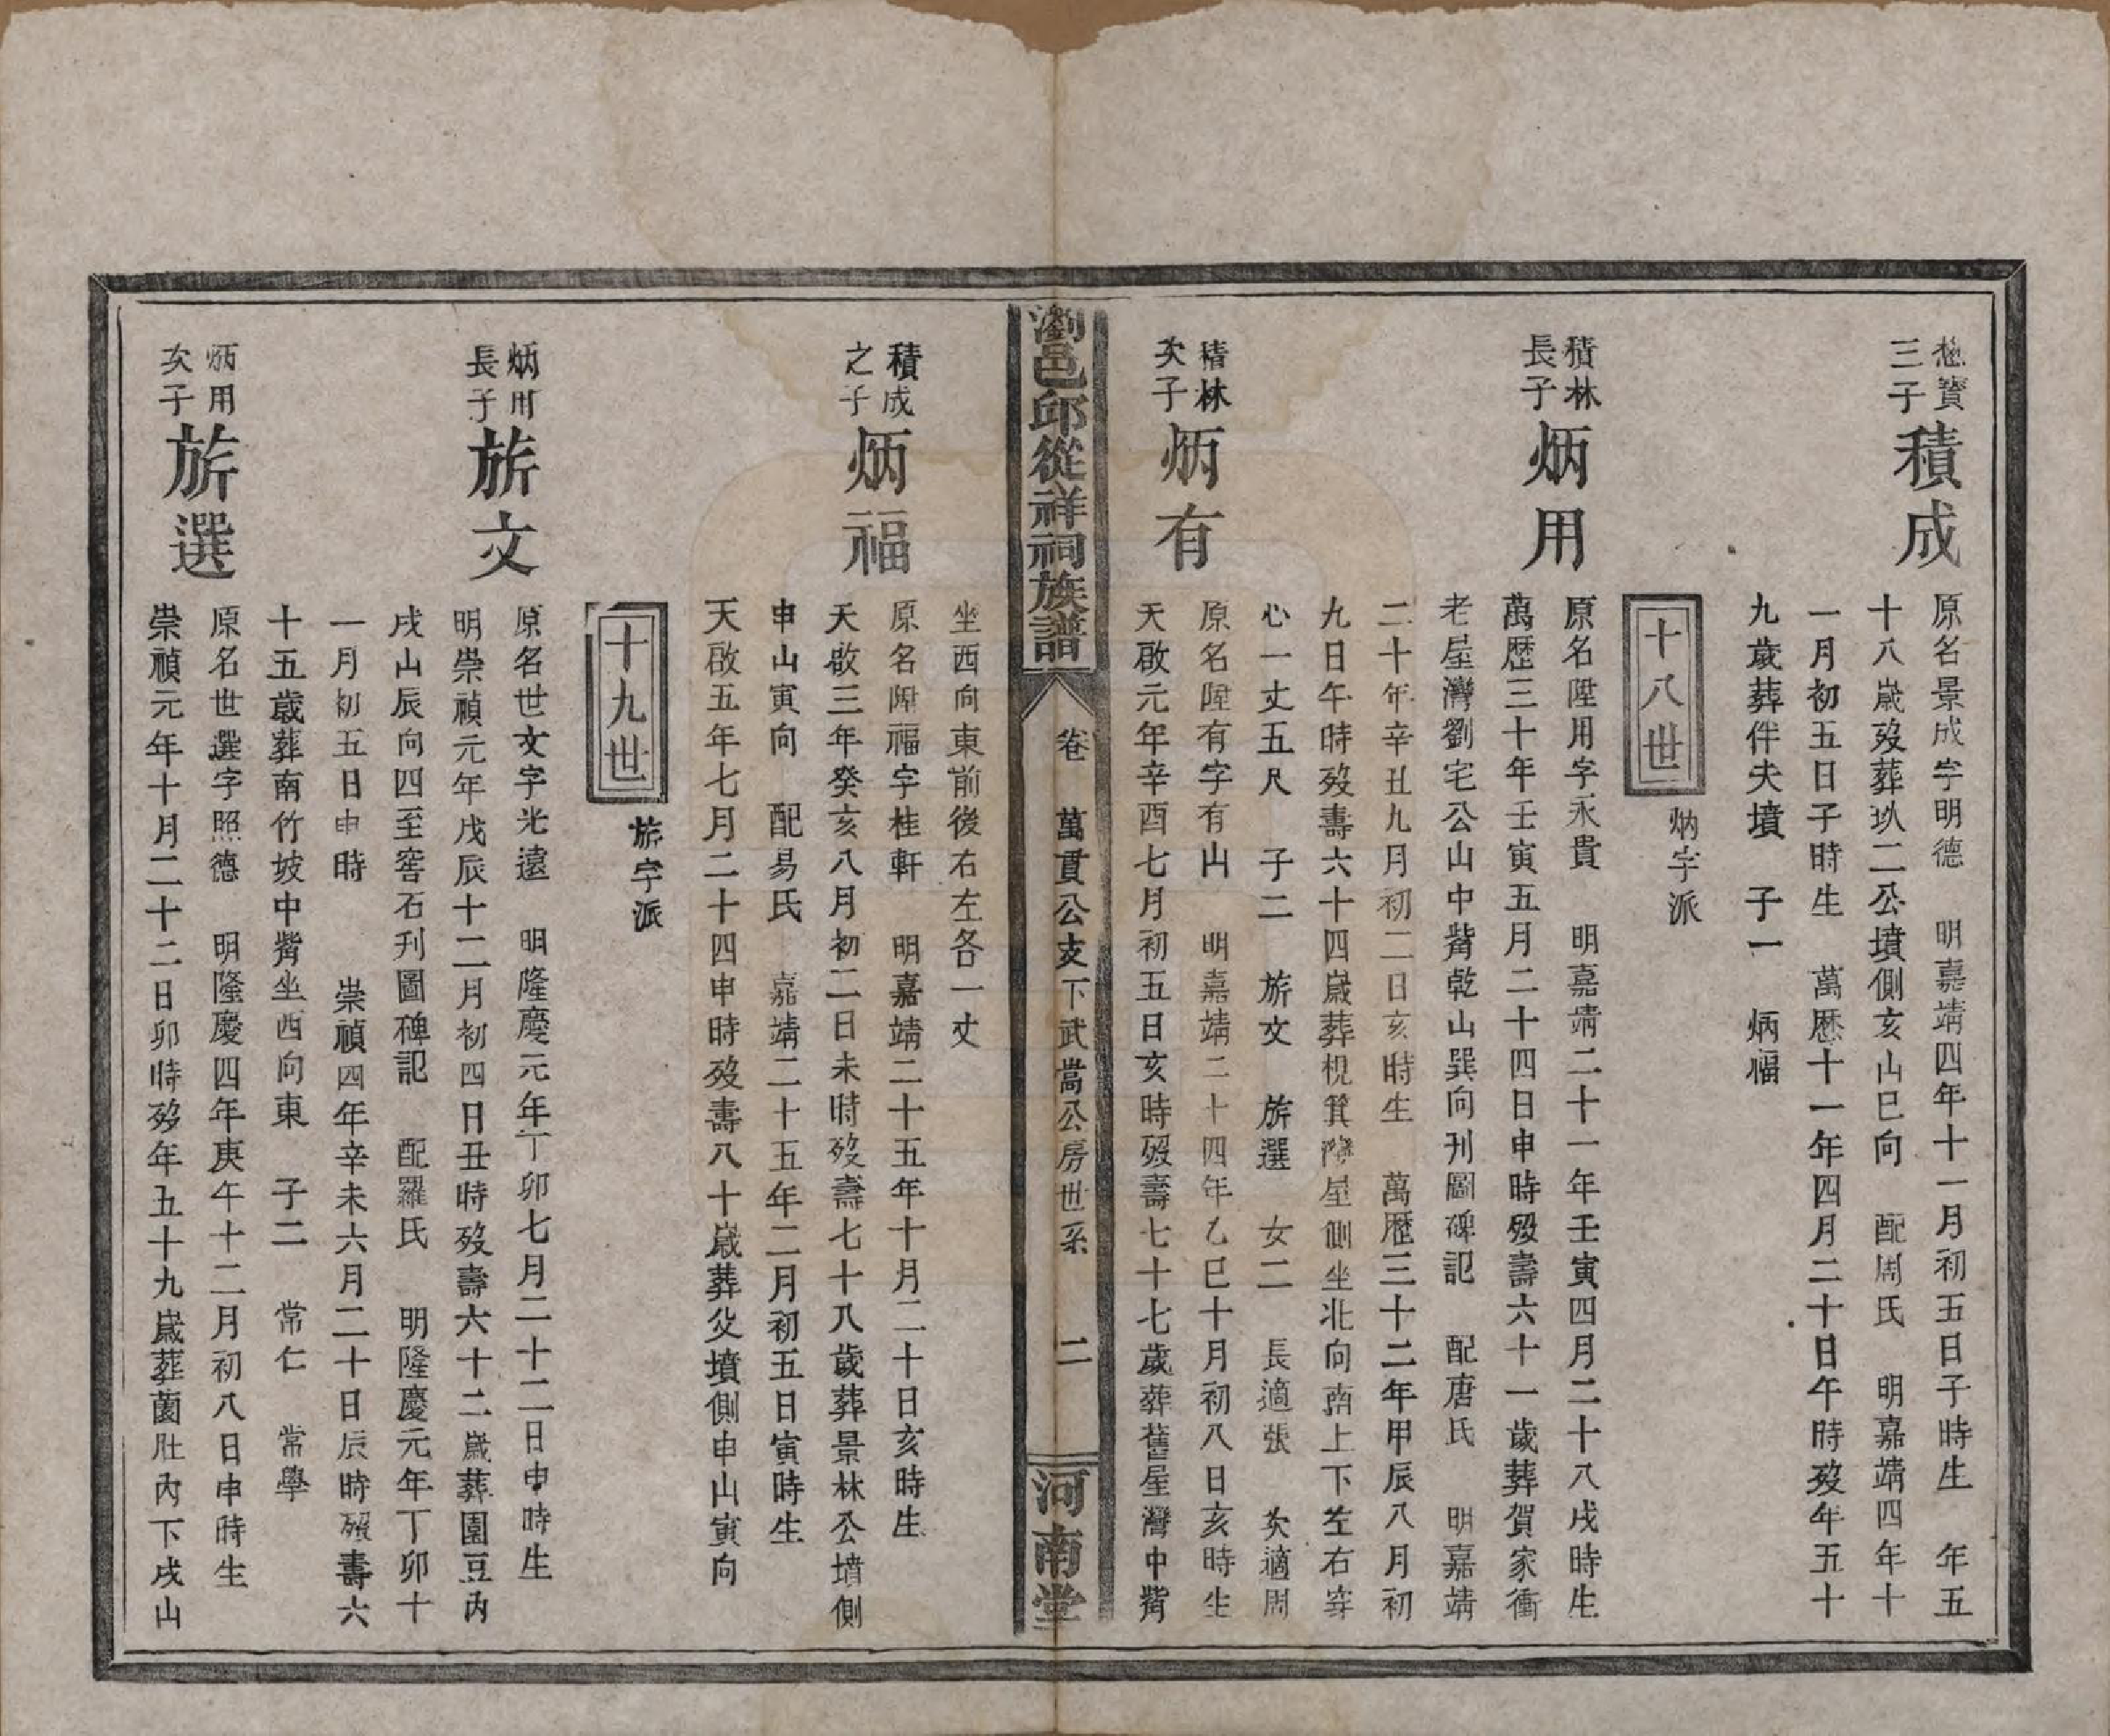 寳
三子
積成
原名景成字明德　明嘉靖四年十一月初五日子時生　年五
十八歲歿葬玖二公墳側亥山巳向　配周氏　明嘉靖四年十
一月初五日子時生　萬歷十一年四月二十日午時歿年五十
九歲葬伴夫墳　子一　炳福
十八世
炳字派
積林
長子
炳用
原名陞用字永貴　明嘉靖二十一年壬寅四月二十八戌時生
萬歷三十年壬寅五月二十四日申時歿壽六十一歲葬賀家衝
老屋灣劉宅公山中嘴乾山巽向刊圖碑記　配唐氏　明嘉靖
二十年辛丑九月初二日亥時生　萬歷三十二年甲辰八月初
九日午時歿壽六十四歲葬梘箕灣屋側坐北向南上下左右穿
心一丈五尺　子二　旂文　旂選　女二　長適張　次適周
積林
次子
炳有
原名陞有字有山　明嘉靖二十四年乙巳十月初八日亥時生
天啟元年辛酉七月初五日亥時歿壽七十七歲葬舊屋灣中嘴
瀏邑邱從祥祠族譜
卷　萬貫公支下武嵩公房世系　二
河南堂
坐西向東前後右左各一丈
積成
之子
炳福
原名陞福字桂軒　明嘉靖二十五年十月二十日亥時生
天啟三年癸亥八月初二日未時歿壽七十八歲葬景林公墳側
申山寅向　配易氏　嘉靖二十五年二月初五日寅時生
天啟五年七月二十四申時歿壽八十歲葬父墳側申山寅向
十九世
旂字派
炳用
長子
旂文
原名世文字光遠　明隆慶元年丁卯七月二十二日申時生
明崇禎元年戊辰十二月初四日丑時歿壽六十二歲葬園豆內
戌山辰向四至窖石刊圖碑記　配羅氏　明隆慶元年丁卯十
一月初五日申時　崇禎四年辛未六月二十日辰時歿壽六
十五歲葬南竹坡中嘴坐西向東　子二　常仁　常學
炳用
次子
旂選
原名世選字照德　明隆慶四年庚午十二月初八日申時生
崇禎元年十月二十二日卯時歿年五十九歲葬薗肚內下戌山